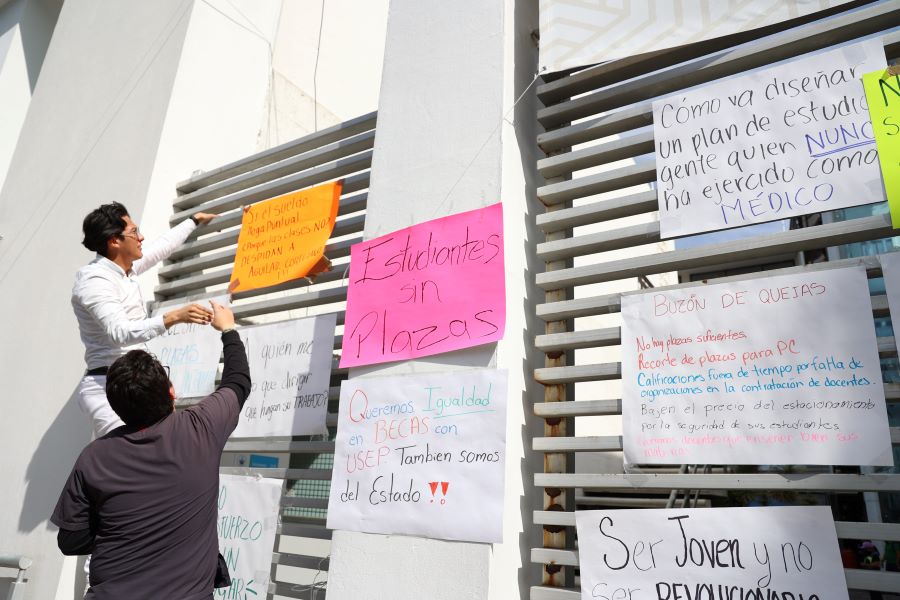 Si el sueldo
llega puntual
¿Porque las clases NO?
DESPIDAN A
AGUILAR
!!!
PLAZAS
quién me
que dirigir
que hagan su TRABAJO
Estudiantes
sin
Plazas
Queremos Igualdad
en BECAS con
USEP Tambien somos
del Estado !!
Cómo va diseñar
un plan de estudio
gente quien NUNC
ha ejercido como
MÉDICO
N
S
BUZÓN DE QUEJAS
No hay plazas suficientes.
Recorte de plazas para PC
Calificaciones fuera de tiempo por falta de
organizaciones en la contratación de docentes.
Bajen el precio del estacionamiento
por la seguridad de sus estudiantes
Queremos docentes que enseñen bien sus
materias.
FUERZO
UN
GAR
Ser Joven y no
Ser REVOLUCIONARIO